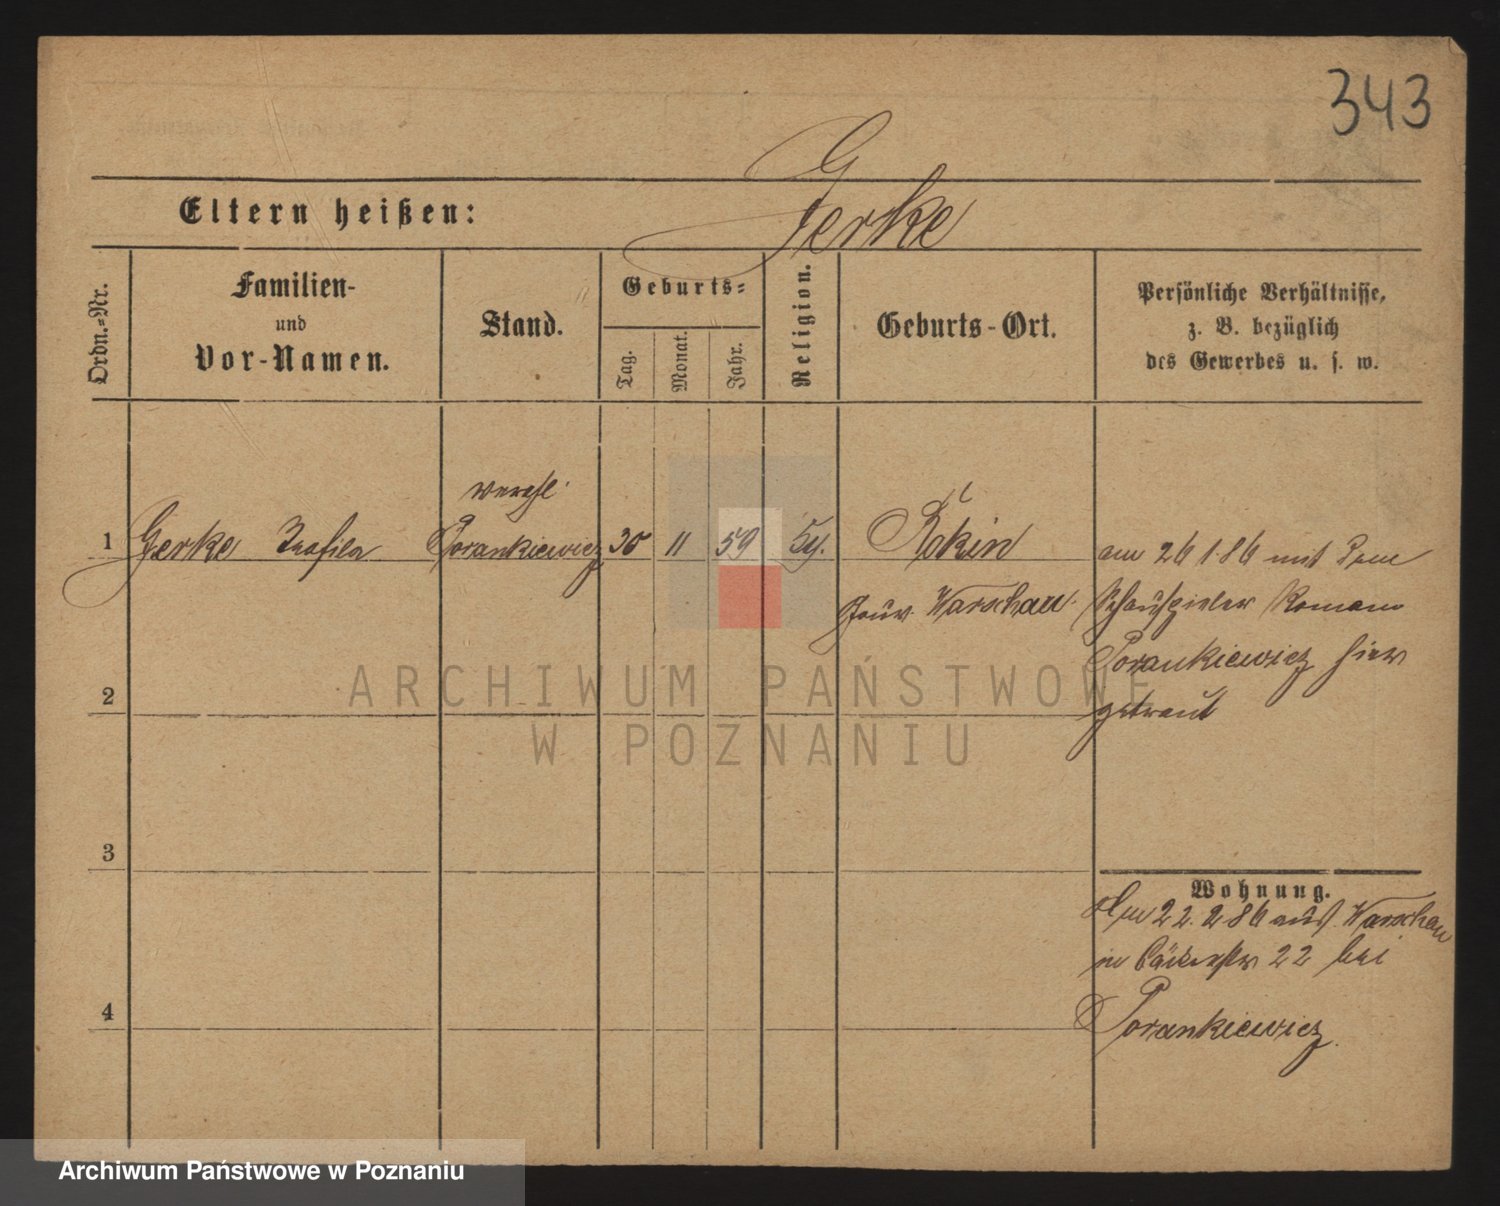 343
Gerke
Eltern heißen:
Ordn.-Nr.
Familien-
und
Vor-Namen.
Stand.
Geburts-
Tag.
Monat.
Jahr.
Religion.
Geburts-Ort.
Persönliche Verhältnisse,
z. B. bezüglich
des Gewerbes u. s. w.
verehl.
1 Gerke Teofila Porankiewicz 30 11 59 Rokin am 26 1. 86 mit dem
Gouv. Warschau. Schauspieler Roman
Porankiewicz hier
getraut
2
3
4
Wohnung.
Am 22. 2 86 aus Warschau
in Bäckerstr 22 bei
Porankiewicz.
ARCHIWUM PAŃSTWOWE
W POZNANIU
Archiwum Państwowe w Poznaniu